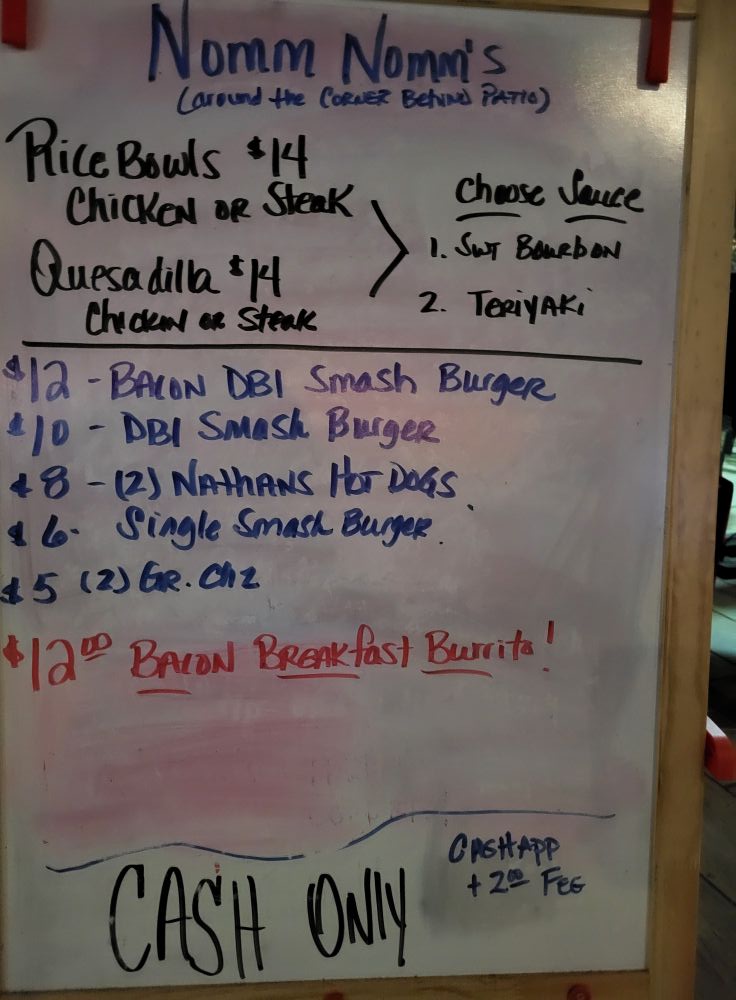 Nomm Nomm's
(around the CORNER BEHIND PATIO)
Rice Bowls $14
CHICKEN OR STEAK
Choose Sauce
1. SWT BOURBON
Quesadilla $14
2. TERIYAKi
CHICKEN OR STEAK
$12 - BACON DBl Smash Burger
$10 - DBl Smash Burger
$8 - (2) NATHANS HOT DOGS
$6 - Single Smash Burger
$5 (2) GR. Chz
$12.00 BACON BREAKfast Burrito!
CASH APP
+ 2.00 FEE
CASH ONLY